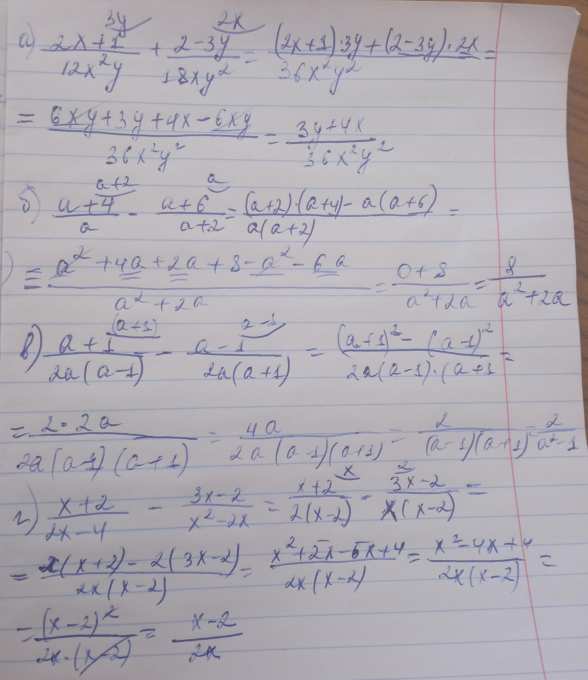 3y 2x
а) (2x+1)/(12x²y) + (2-3y)/(18xy²) = ((2x+1)·3y+(2-3y)·2x)/(36x²y²) =
= (6xy+3y+4x-6xy)/(36x²y²) = (3y+4x)/(36x²y²)
a+2 a
б) (a+4)/a - (a+6)/(a+2) = ((a+2)·(a+4)-a(a+6))/(a(a+2)) =
= (a²+4a+2a+8-a²-6a)/(a²+2a) = (0+8)/(a²+2a) = 8/(a²+2a)
(a+1) a-1
в) (a+1)/(2a(a-1)) - (a-1)/(2a(a+1)) = ((a+1)²-(a-1)²)/(2a(a-1)·(a+1) =
= (2·2a)/(2a(a-1)(a+1)) = 4a/(2a(a-1)(a+1)) = 2/((a-1)(a+1)) = 2/(a²-1)
x 2
г) (x+2)/(2x-4) - (3x-2)/(x²-2x) = (x+2)/(2(x-2)) - (3x-2)/(x(x-2)) =
= (x(x+2)-2(3x-2))/(2x(x-2)) = (x²+2x-6x+4)/(2x(x-2)) = (x²-4x+4)/(2x(x-2)) =
= (x-2)²/(2x·(x-2)) = (x-2)/(2x)